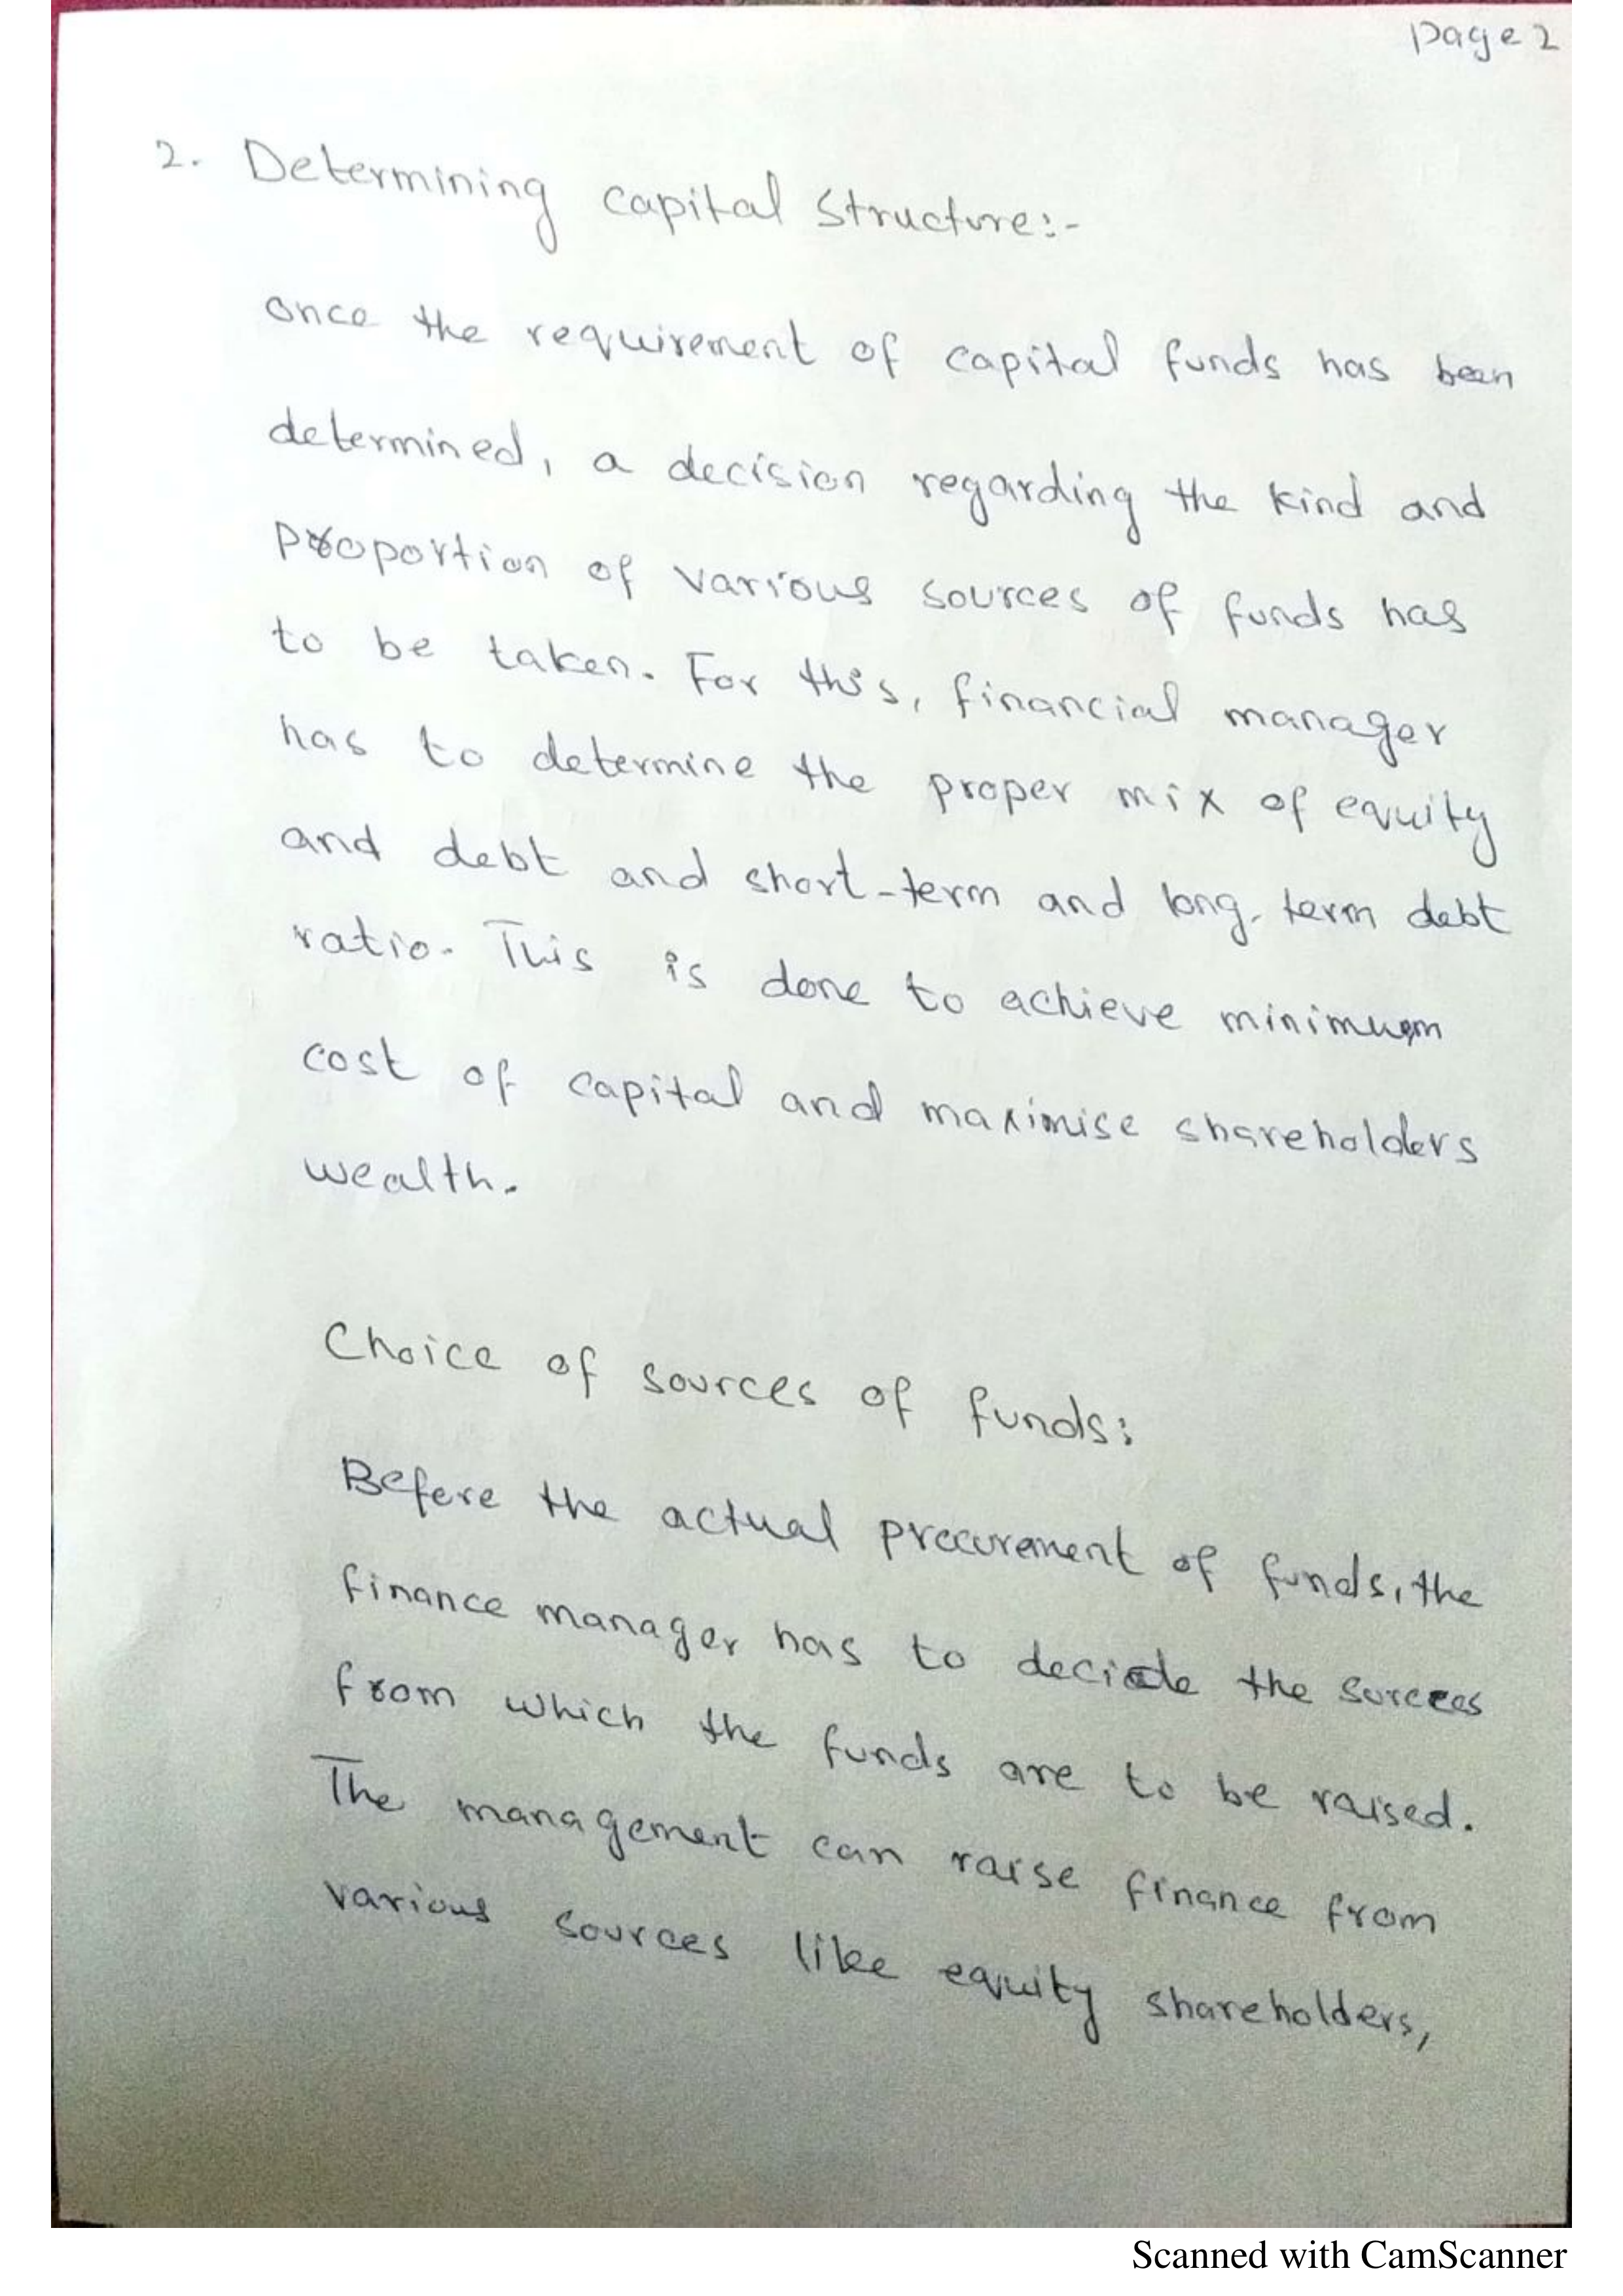 Page 2
2. Determining capital structure:-
once the requirement of capital funds has been
determined, a decision regarding the kind and
proportion of various sources of funds has
to be taken. For this, financial manager
has to determine the proper mix of equity
and debt and short-term and long-term debt
ratio. This is done to achieve minimum
cost of capital and maximise shareholders
wealth.
Choice of sources of funds:
Before the actual procurement of funds, the
finance manager has to decide the sources
from which the funds are to be raised.
The management can raise finance from
various sources like equity shareholders,
Scanned with CamScanner